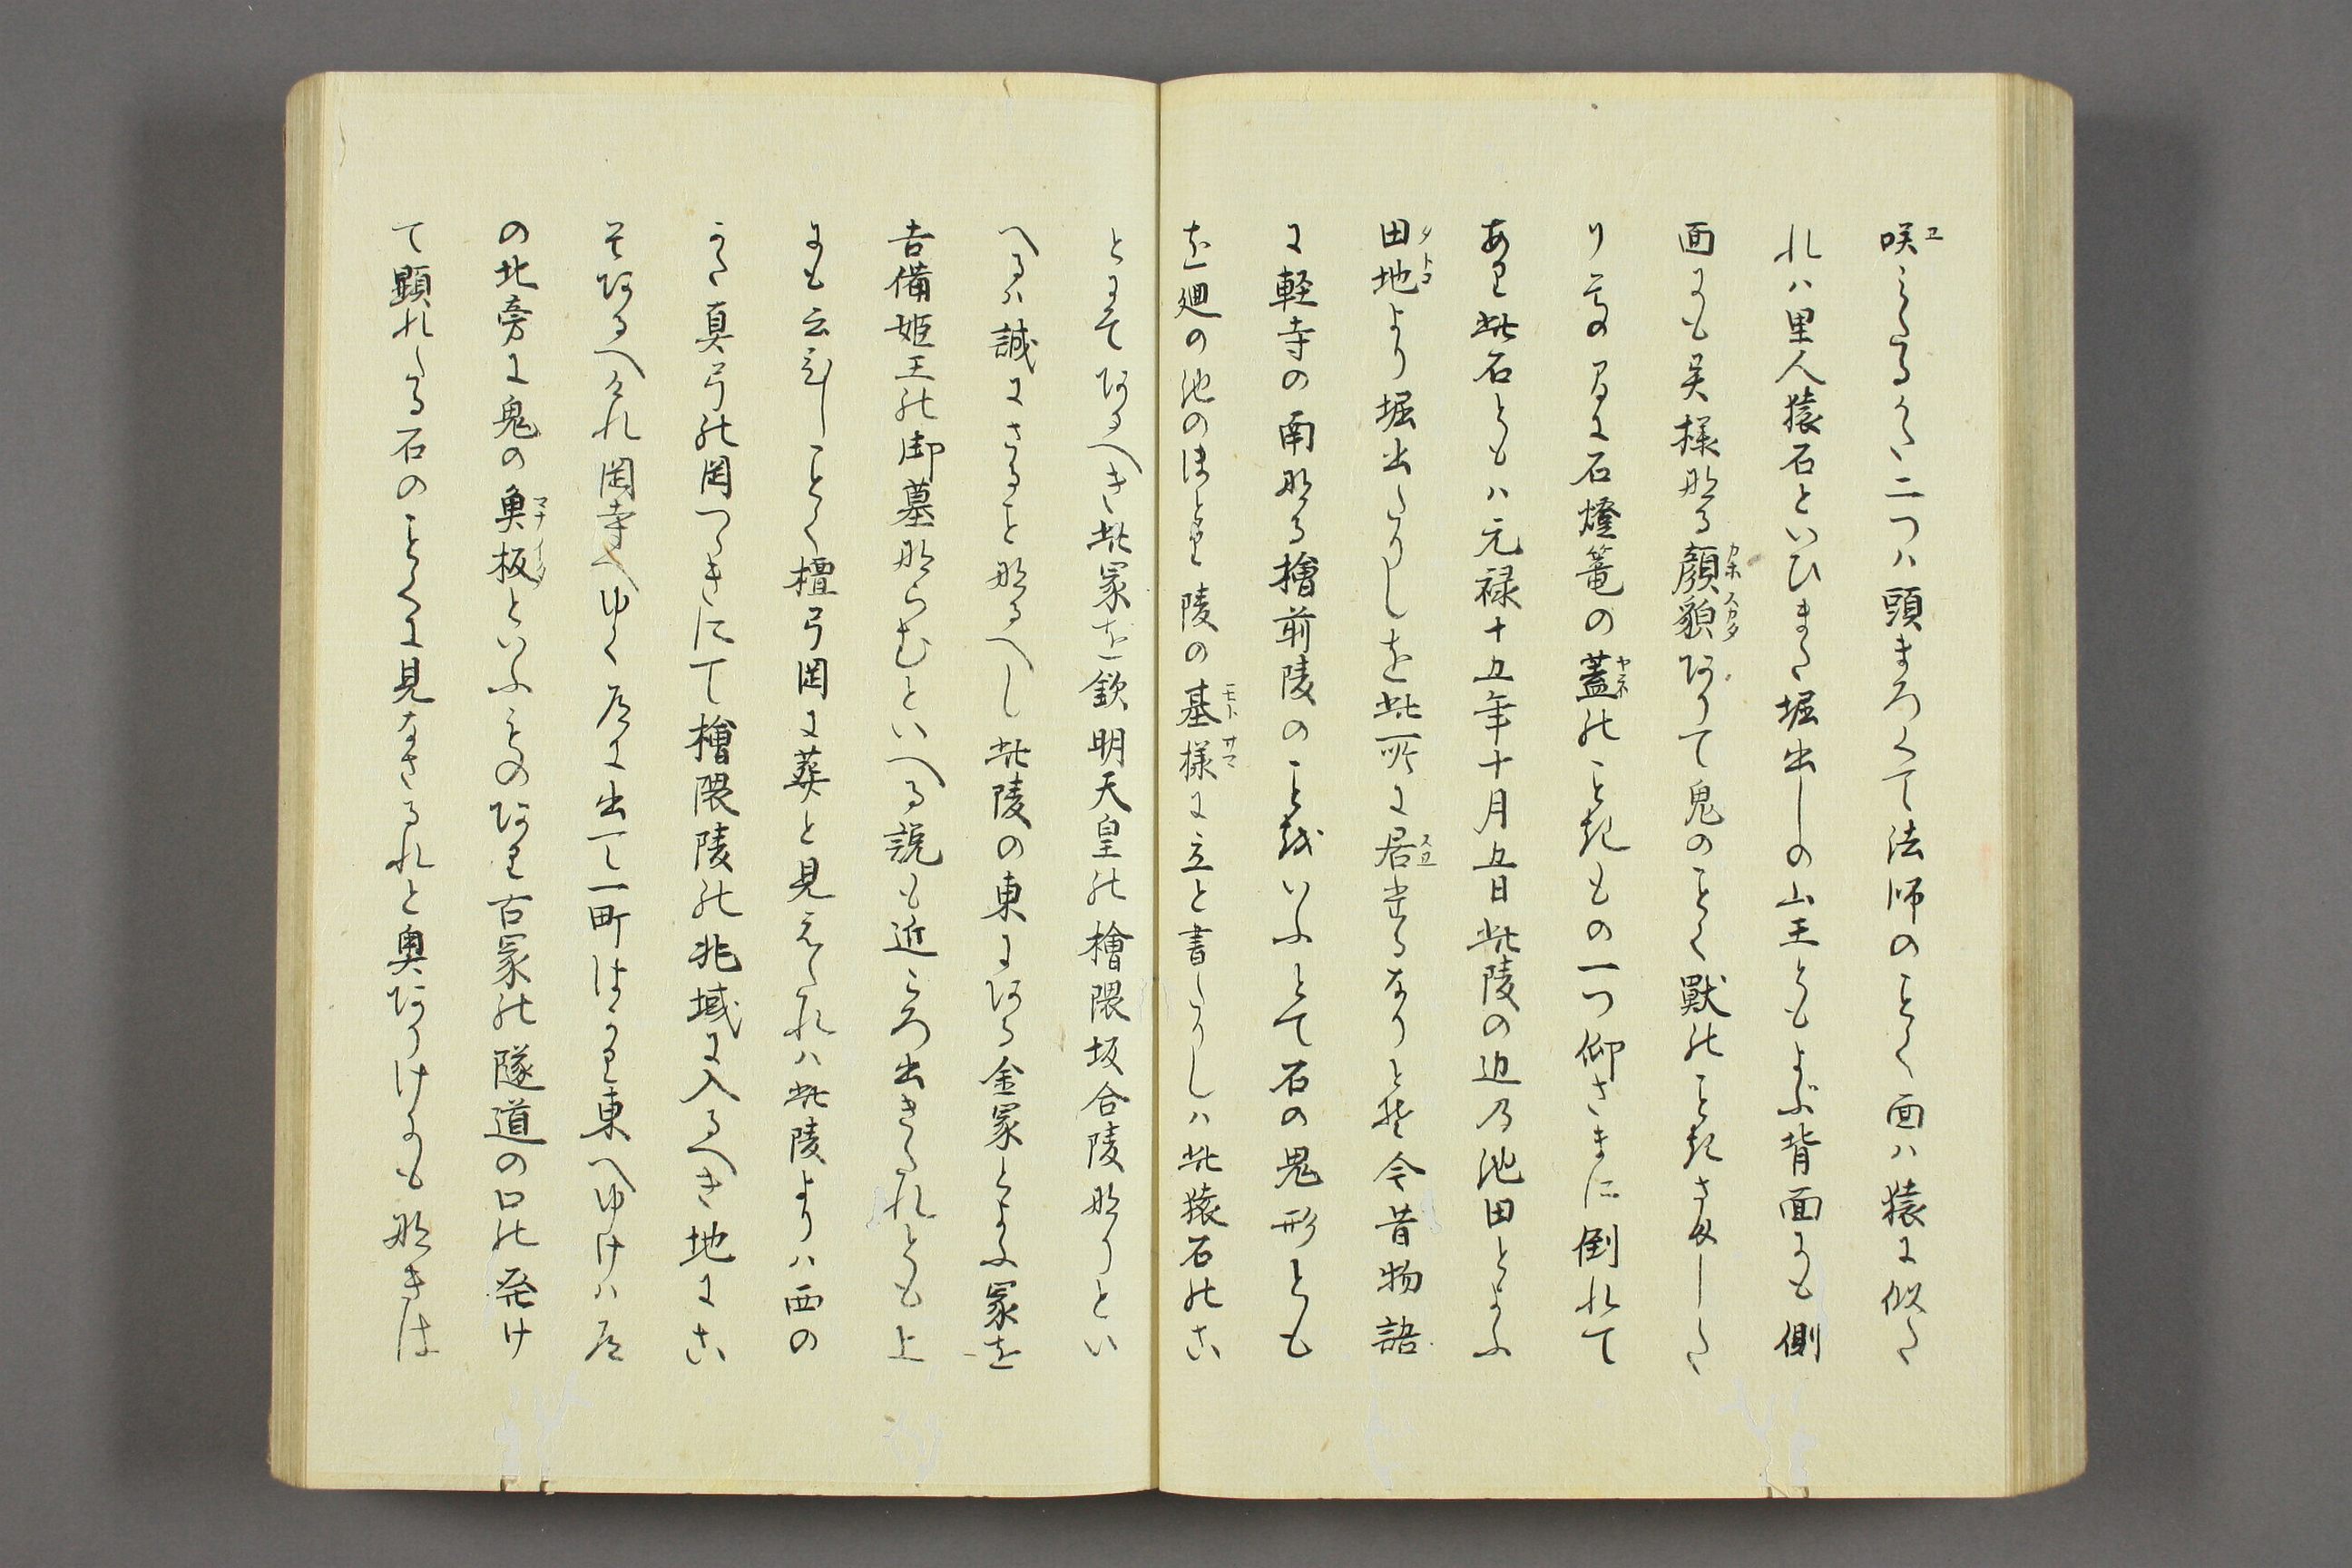 咲みたるかた二つハ頭まろくて法師のことく面ハ猿に似た
れハ里人猿石といひまた堀出しの山王ともよぶ背面にも側
面にも異様なる顔貌ありて鬼のことく獣のことき さましたり
り 石燈篭の蓋のこときもの一つ仰さまに倒れて
あり此石ともハ元禄十五年十月五日此陵の辺乃池田とよふ
田地より堀出たりしを此所に居たるなりとそ今昔物語
に軽寺の南なる檜前陵のことをいふとて石の鬼形とも
を廻の池のほとり陵の基様に立と書たりしハ此猿石のこ
とにてあるへき此冢を欽明天皇の檜隈坂合陵なりとい
へるハ誠にさること なるへし此陵の東にある金冢とよふ冢を
吉備姫王の御墓ならむといへる説も近ころ出きたれとも上
にも云ひしことく檀弓岡に葬と見えたれハ此陵よりハ西の
かた真弓の岡つゝきにて檜隈陵の兆域に入るへき地にこ
そあるへけれ岡寺へゆく道に出て一町はかり東へゆけハ道
の北旁に鬼の魚板といふものあり古冢の隧道の口の発け
て顕れたる石のことくに見なさるれと奥ありけにも なきは